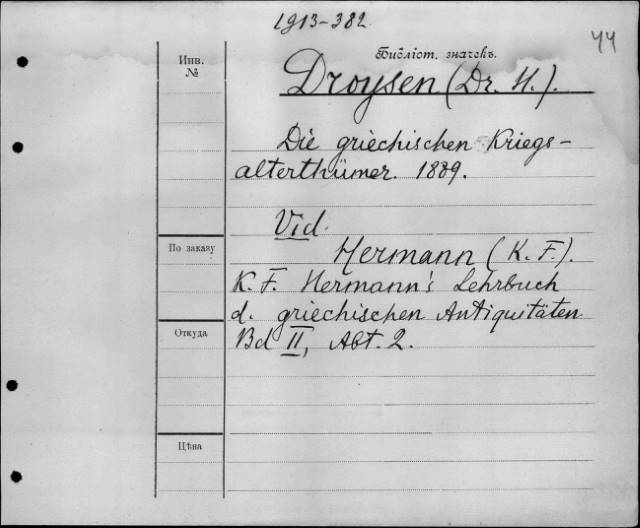 1913-382
44
Библіот. значекъ.
Инв.
№
Droysen (Dr. H.).
Die griechischen Kriegs-
alterthümer. 1889.
Vid.
По заказу
Hermann (K. F.).
K. F. Hermann's Lehrbuch
d. griechischen Antiquitäten
Откуда
Bd II, Abt. 2.
Цѣна